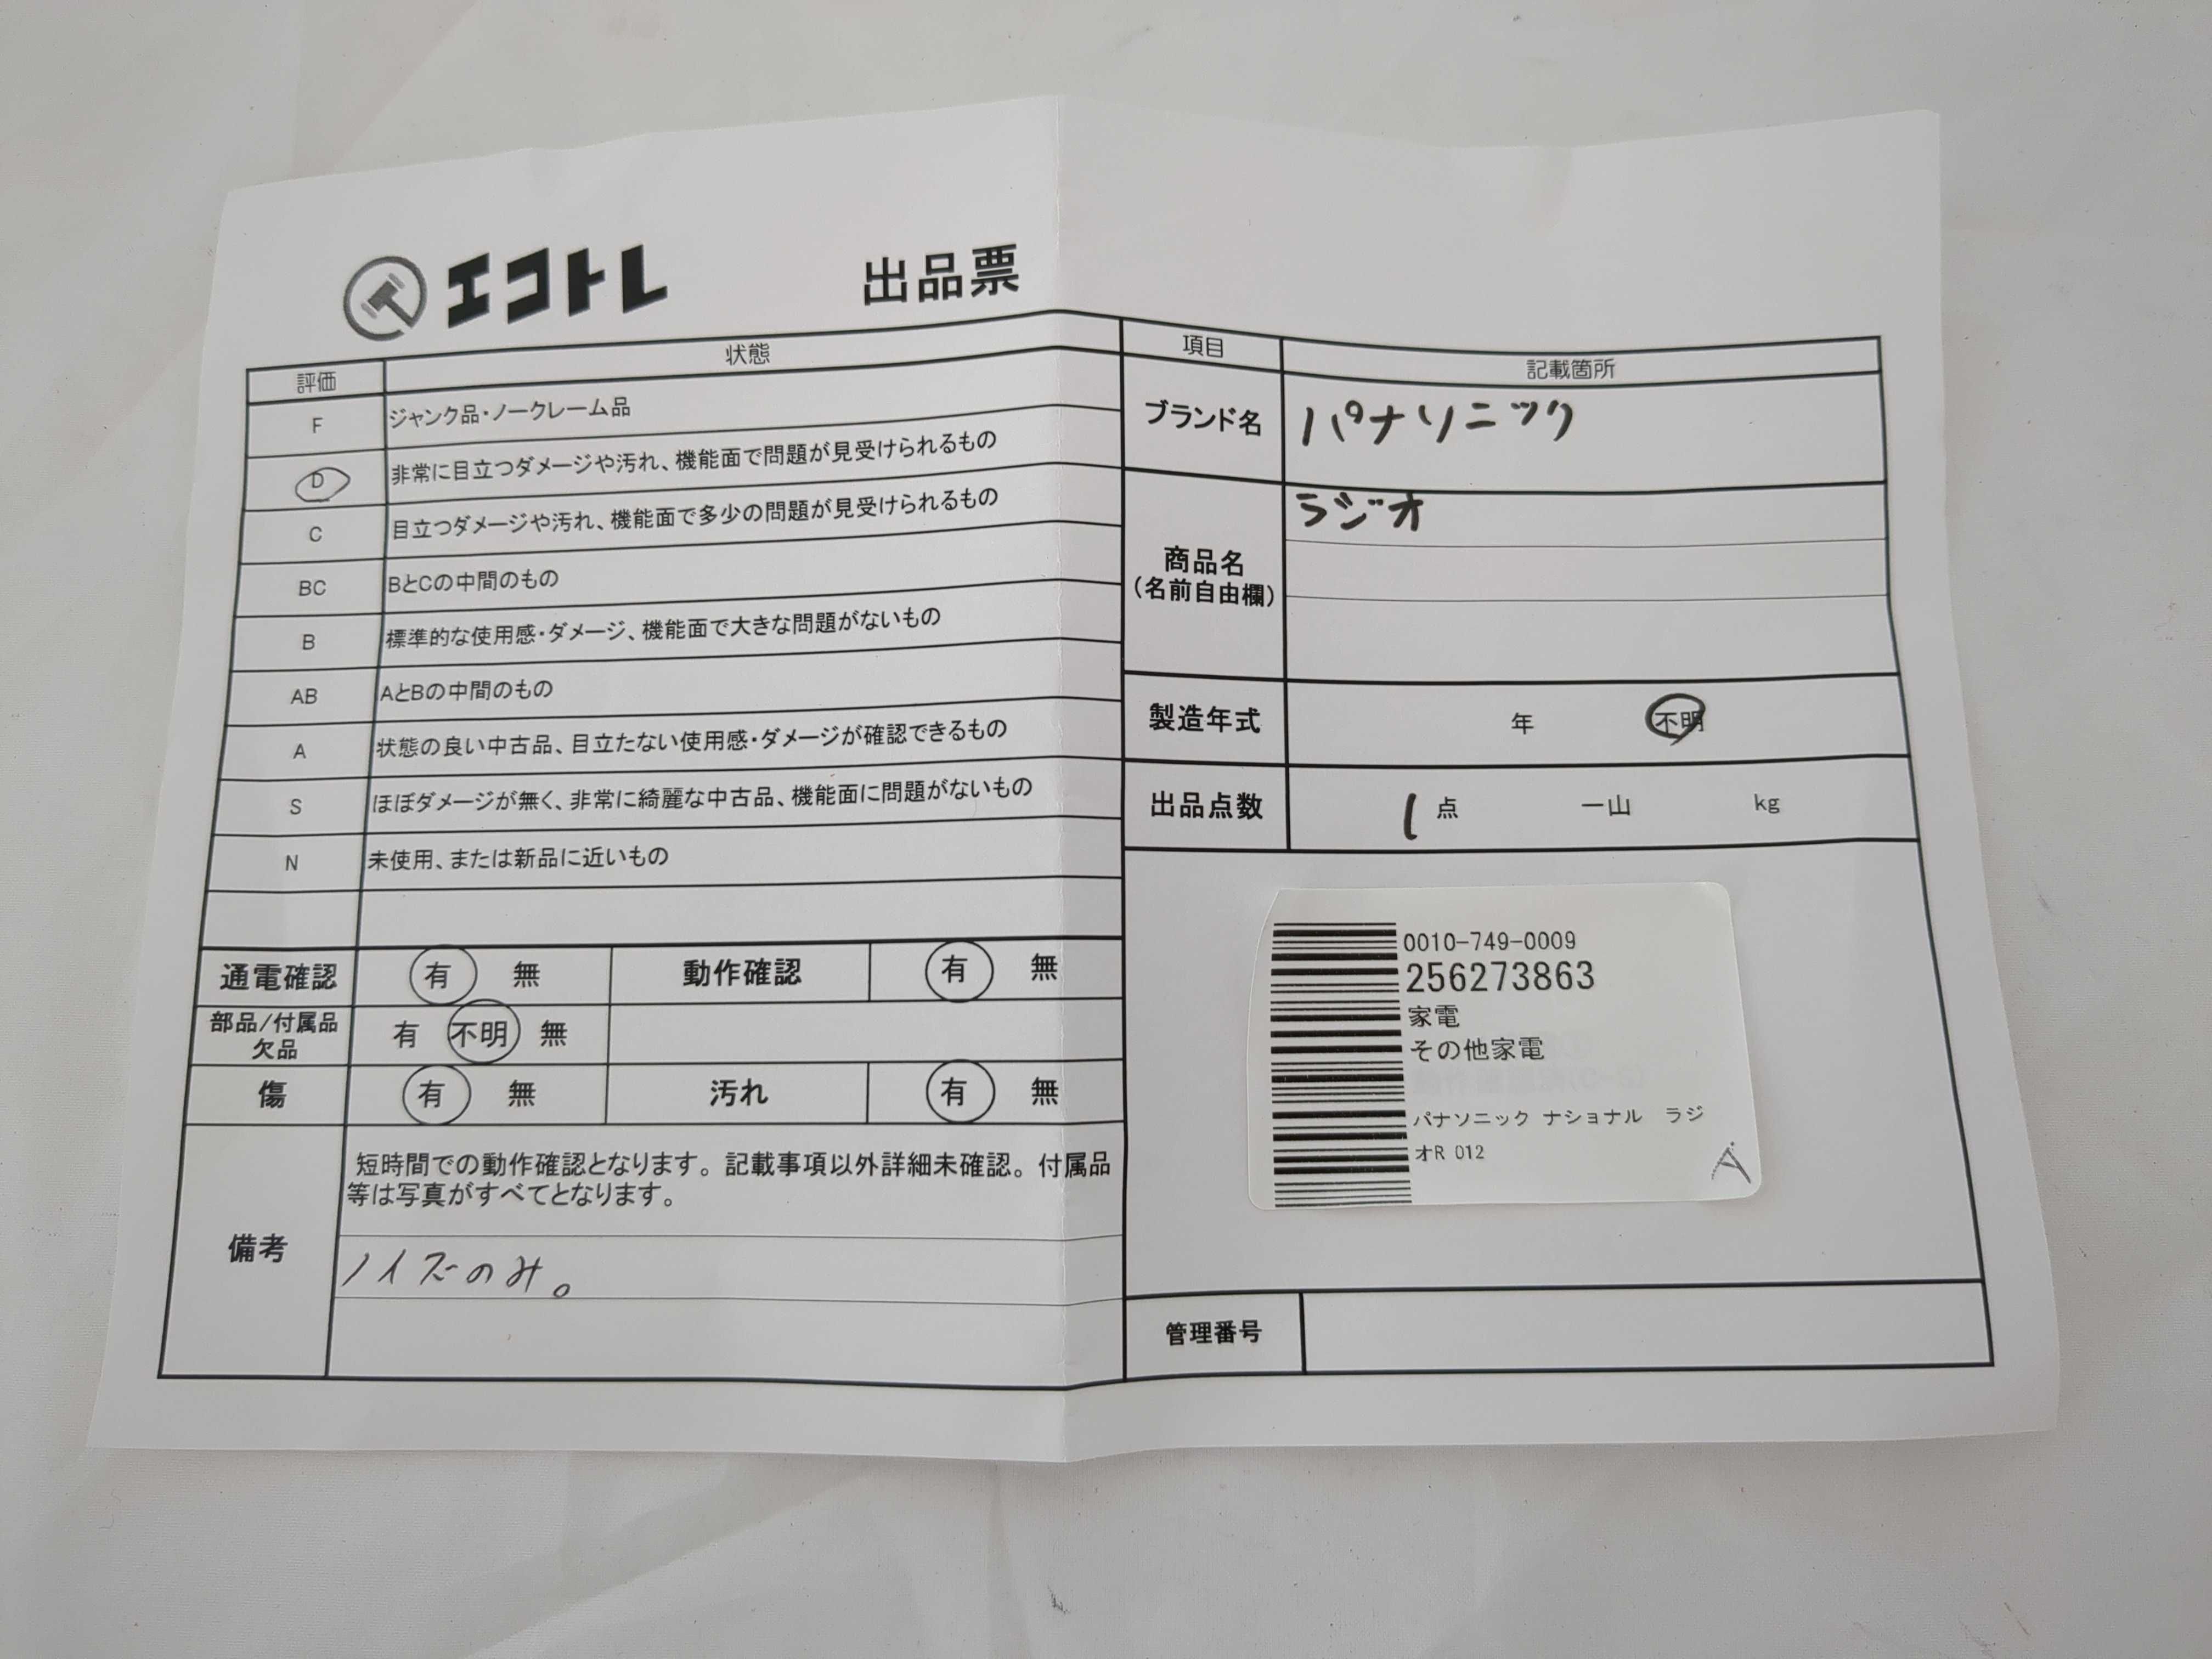 エコトレ
出品票
評価 状態
F ジャンク品・ノークレーム品
D 非常に目立つダメージや汚れ、機能面で問題が見受けられるもの
C 目立つダメージや汚れ、機能面で多少の問題が見受けられるもの
BC BとCの中間のもの
B 標準的な使用感・ダメージ、機能面で大きな問題がないもの
AB AとBの中間のもの
A 状態の良い中古品、目立たない使用感・ダメージが確認できるもの
S ほぼダメージが無く、非常に綺麗な中古品、機能面に問題がないもの
N 未使用、または新品に近いもの
通電確認 有 無 動作確認 有 無
部品/付属品
欠品
有 不明 無
傷 有 無 汚れ 有 無
備考
短時間での動作確認となります。記載事項以外詳細未確認。付属品
等は写真がすべてとなります。
ノイズのみ。
項目 記載箇所
ブランド名 パナソニック
商品名
(名前自由欄)
ラジオ
製造年式 年 不明
出品点数 1点 一山 kg
0010-749-0009
256273863
家電
その他家電
パナソニック ナショナル ラジ
オR 012
管理番号